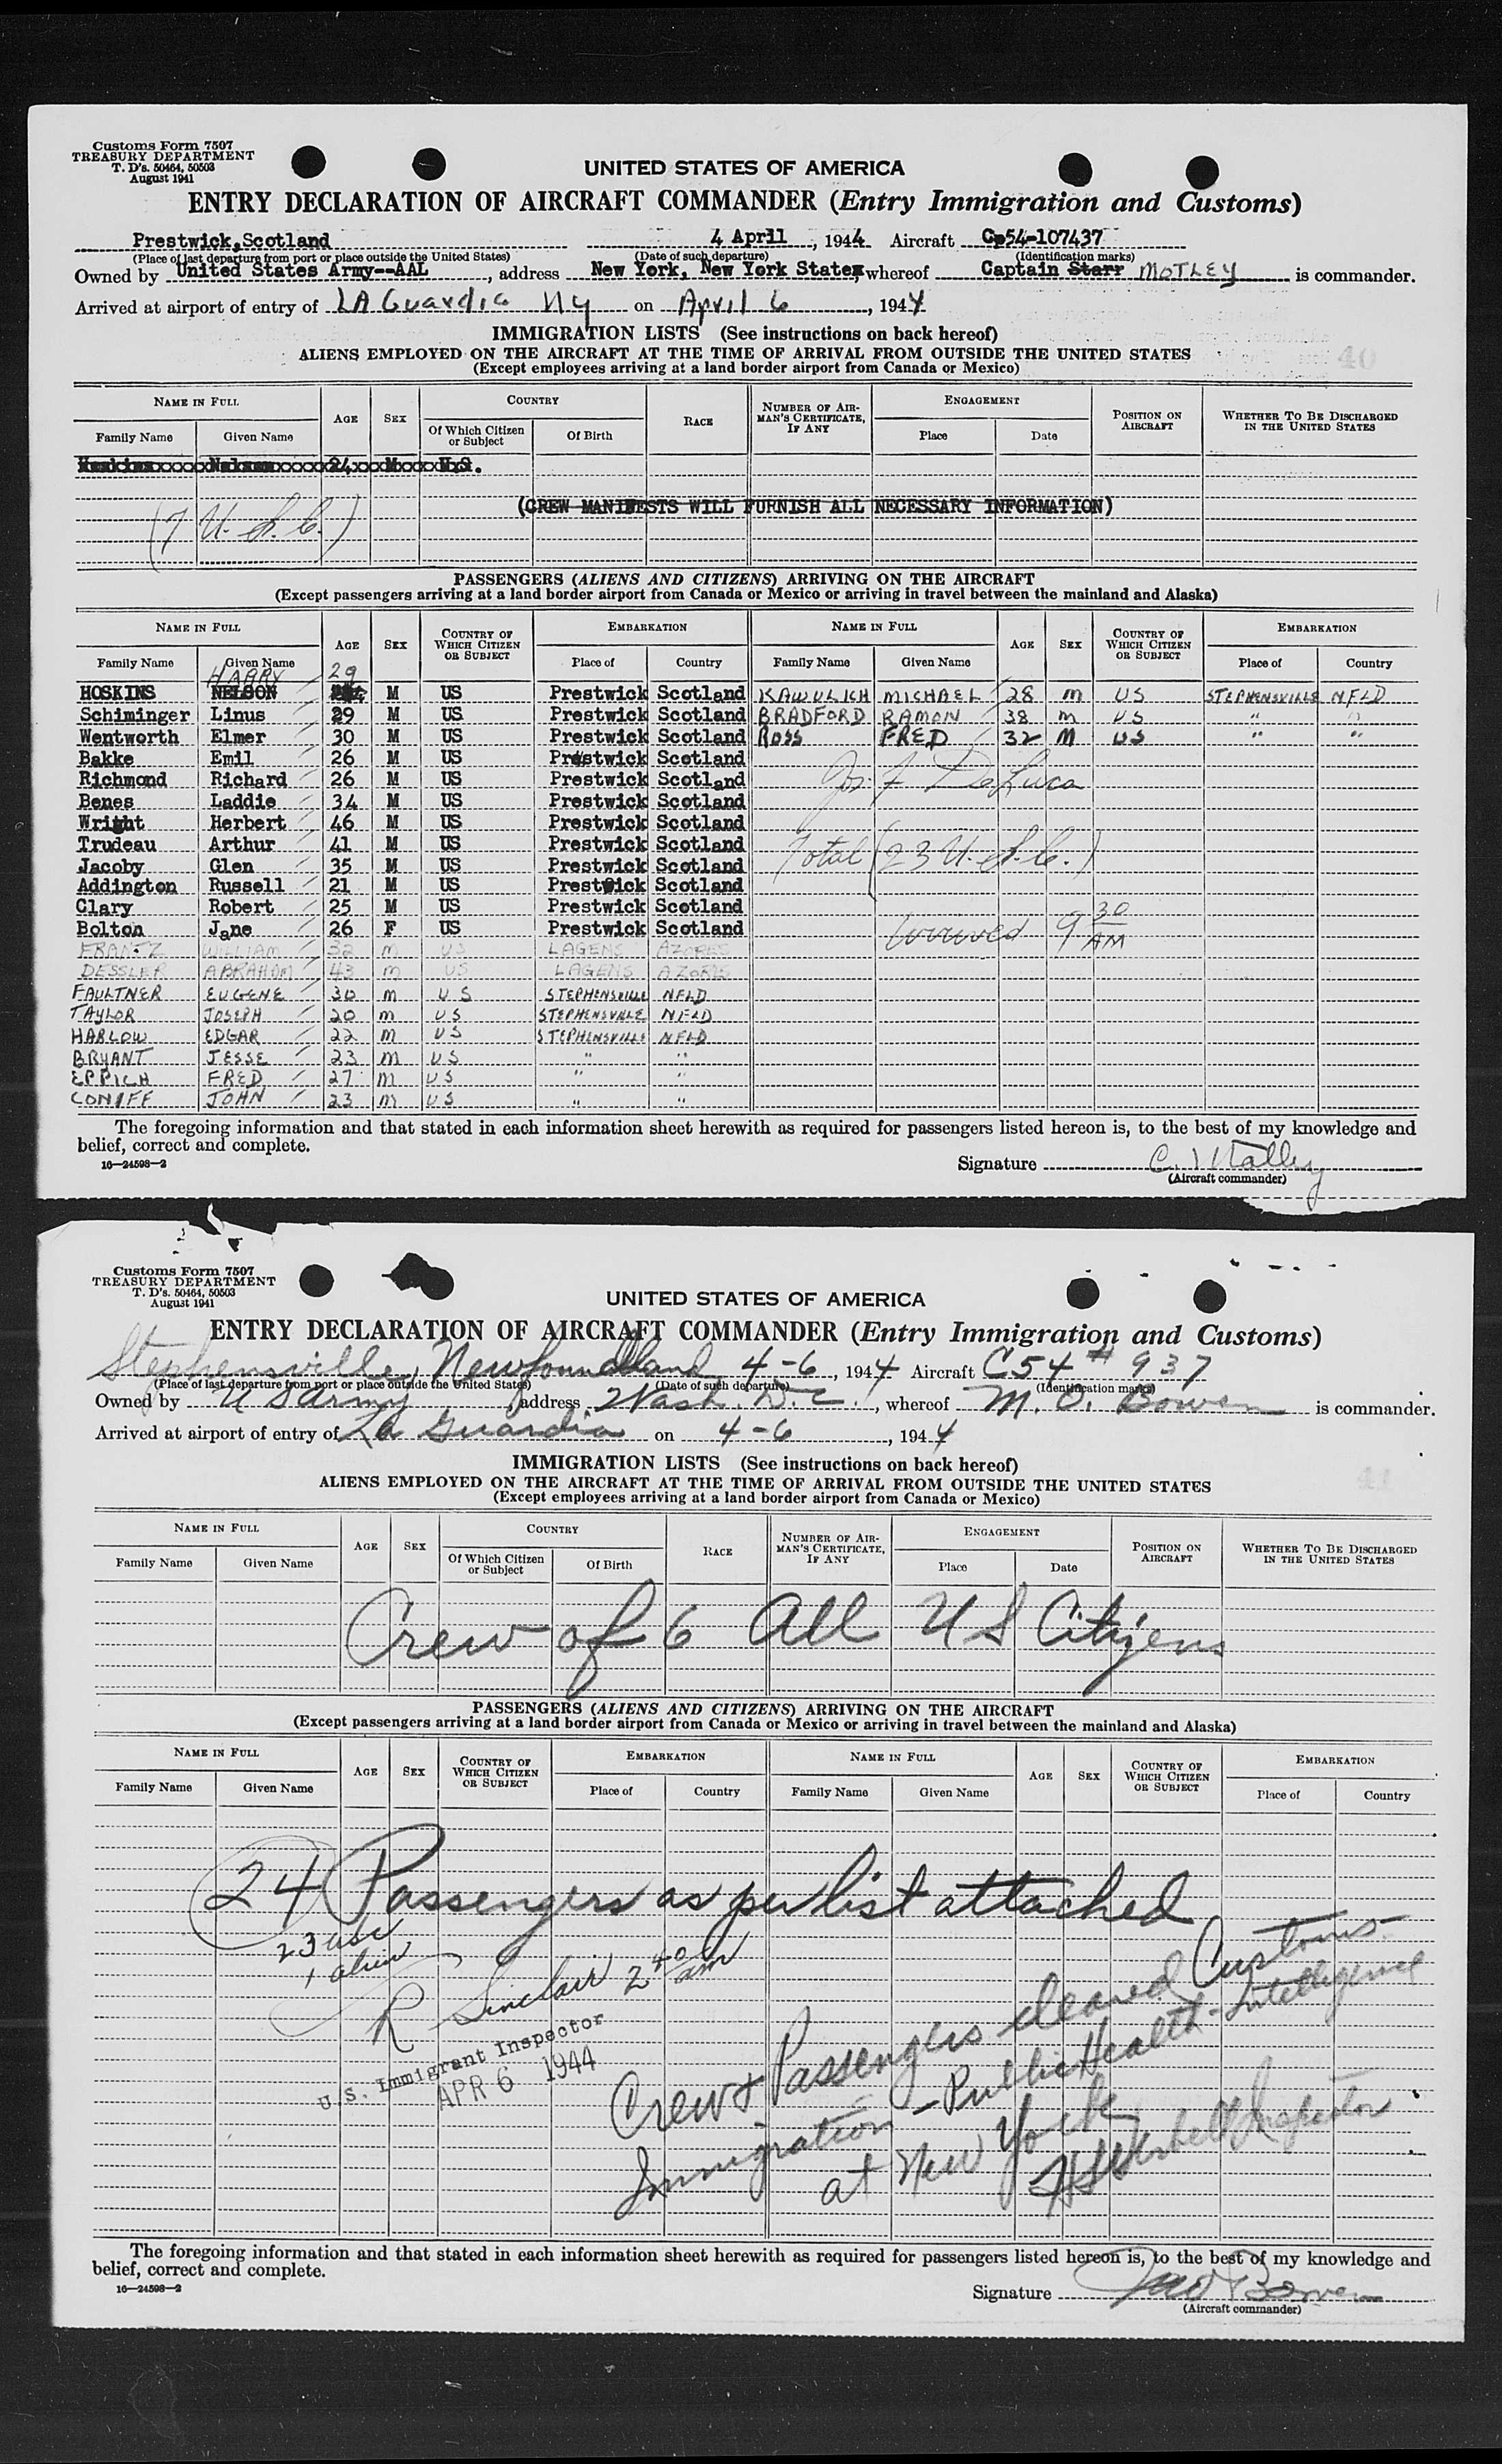 Customs Form 7507
TREASURY DEPARTMENT
T. D's. 50464, 50503
August 1941
UNITED STATES OF AMERICA
ENTRY DECLARATION OF AIRCRAFT COMMANDER (Entry Immigration and Customs)
Prestwick, Scotland 4 April, 1944 Aircraft C-54-107437
(Place of last departure from port or place outside the United States) (Date of such departure) (Identification marks)
Owned by United States Army--AAL, address New York, New York State, whereof Captain Starr MOTLEY is commander.
Arrived at airport of entry of LA Guardia NY on April 6, 1944
IMMIGRATION LISTS (See instructions on back hereof)
ALIENS EMPLOYED ON THE AIRCRAFT AT THE TIME OF ARRIVAL FROM OUTSIDE THE UNITED STATES
40
(Except employees arriving at a land border airport from Canada or Mexico)
NAME IN FULL AGE SEX COUNTRY RACE NUMBER OF AIRMAN'S CERTIFICATE, IF ANY ENGAGEMENT POSITION ON AIRCRAFT WHETHER TO BE DISCHARGED IN THE UNITED STATES
Family Name Given Name Of Which Citizen or Subject Of Birth Place Date
Hoskins Nelson 24 M U.S.
(CREW MANIFESTS WILL FURNISH ALL NECESSARY INFORMATION)
(7 U.S.C.)
PASSENGERS (ALIENS AND CITIZENS) ARRIVING ON THE AIRCRAFT
(Except passengers arriving at a land border airport from Canada or Mexico or arriving in travel between the mainland and Alaska)
NAME IN FULL AGE SEX COUNTRY OF WHICH CITIZEN OR SUBJECT EMBARKATION NAME IN FULL AGE SEX COUNTRY OF WHICH CITIZEN OR SUBJECT EMBARKATION
Family Name Given Name Place of Country Family Name Given Name Place of Country
HARRY 29
HOSKINS NELSON M US Prestwick Scotland KAWULICH MICHAEL 28 M US STEPHENSVILLE NFLD
Schiminger Linus 29 M US Prestwick Scotland BRADFORD RAMON 38 M US " "
Wentworth Elmer 30 M US Prestwick Scotland ROSS FRED 32 M US " "
Bakke Emil 26 M US Prestwick Scotland
Richmond Richard 26 M US Prestwick Scotland Jos. F DeLuca
Benes Laddie 34 M US Prestwick Scotland
Wright Herbert 46 M US Prestwick Scotland
Trudeau Arthur 41 M US Prestwick Scotland Total (23 U.S.C.)
Jacoby Glen 35 M US Prestwick Scotland
Addington Russell 21 M US Prestwick Scotland
Clary Robert 25 M US Prestwick Scotland
Bolton Jane 26 F US Prestwick Scotland arrived 9 30 AM
FRANTZ WILLIAM 32 M US LAGENS AZORES
DESSLER ABRAHAM 43 M US LAGENS AZORES
FAULTNER EUGENE 30 M US STEPHENSVILLE NFLD
TAYLOR JOSEPH 20 M US STEPHENSVILLE NFLD
HARLOW EDGAR 22 M US STEPHENSVILLE NFLD
BRYANT JESSE 23 M US " "
EPPICH FRED 27 M US " "
CONIFF JOHN 23 M US " "
The foregoing information and that stated in each information sheet herewith as required for passengers listed hereon is, to the best of my knowledge and
belief, correct and complete.
16—24598-2
Signature C. Motley
(Aircraft commander)
Customs Form 7507
TREASURY DEPARTMENT
T. D's. 50464, 50503
August 1941
UNITED STATES OF AMERICA
ENTRY DECLARATION OF AIRCRAFT COMMANDER (Entry Immigration and Customs)
Stephensville, Newfoundland 4-6, 1944 Aircraft C54 # 937
(Place of last departure from port or place outside the United States) (Date of such departure) (Identification marks)
Owned by U S Army address Wash. D.C., whereof M. O. Bowen is commander.
Arrived at airport of entry of La Guardia on 4-6, 1944
IMMIGRATION LISTS (See instructions on back hereof)
ALIENS EMPLOYED ON THE AIRCRAFT AT THE TIME OF ARRIVAL FROM OUTSIDE THE UNITED STATES
41
(Except employees arriving at a land border airport from Canada or Mexico)
NAME IN FULL AGE SEX COUNTRY RACE NUMBER OF AIRMAN'S CERTIFICATE, IF ANY ENGAGEMENT POSITION ON AIRCRAFT WHETHER TO BE DISCHARGED IN THE UNITED STATES
Family Name Given Name Of Which Citizen or Subject Of Birth Place Date
Crew of 6 All US Citizens
PASSENGERS (ALIENS AND CITIZENS) ARRIVING ON THE AIRCRAFT
(Except passengers arriving at a land border airport from Canada or Mexico or arriving in travel between the mainland and Alaska)
NAME IN FULL AGE SEX COUNTRY OF WHICH CITIZEN OR SUBJECT EMBARKATION NAME IN FULL AGE SEX COUNTRY OF WHICH CITIZEN OR SUBJECT EMBARKATION
Family Name Given Name Place of Country Family Name Given Name Place of Country
24 Passengers as per list attached
23 usc
1 alien
R Sinclair 2 40 am
U.S. Immigrant Inspector
APR 6 1944
Crew & Passengers cleared Customs-
Immigration - Public Health - Intelligence
at New York
Inspector
The foregoing information and that stated in each information sheet herewith as required for passengers listed hereon is, to the best of my knowledge and
belief, correct and complete.
16—24598-2
Signature M O Bowen
(Aircraft commander)